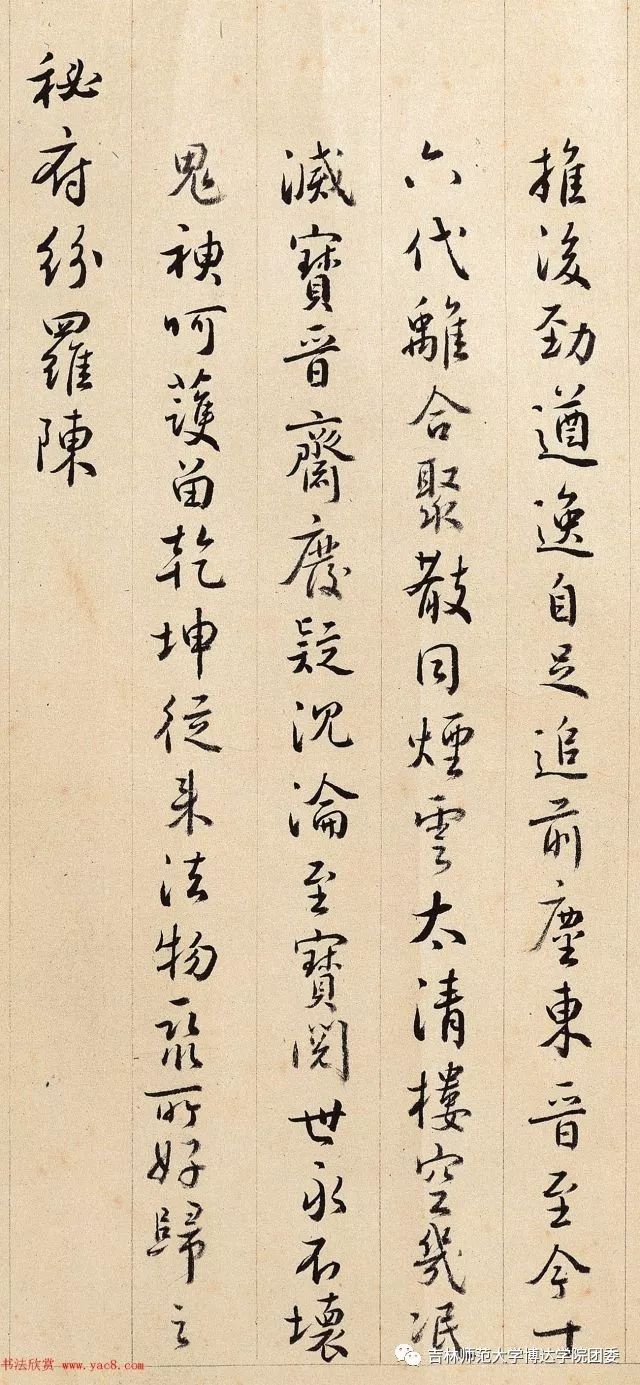 推後勁遒逸自足追前塵東晉至今十
六代離合聚散同煙雲太清樓空幾泯
滅寶晉齋廢疑沉淪至寶閱世永不壞
鬼神呵護留乾坤從来法物聚所好歸之
秘府紛羅陳
书法欣赏 www.yac8.com
吉林师范大学博达学院团委